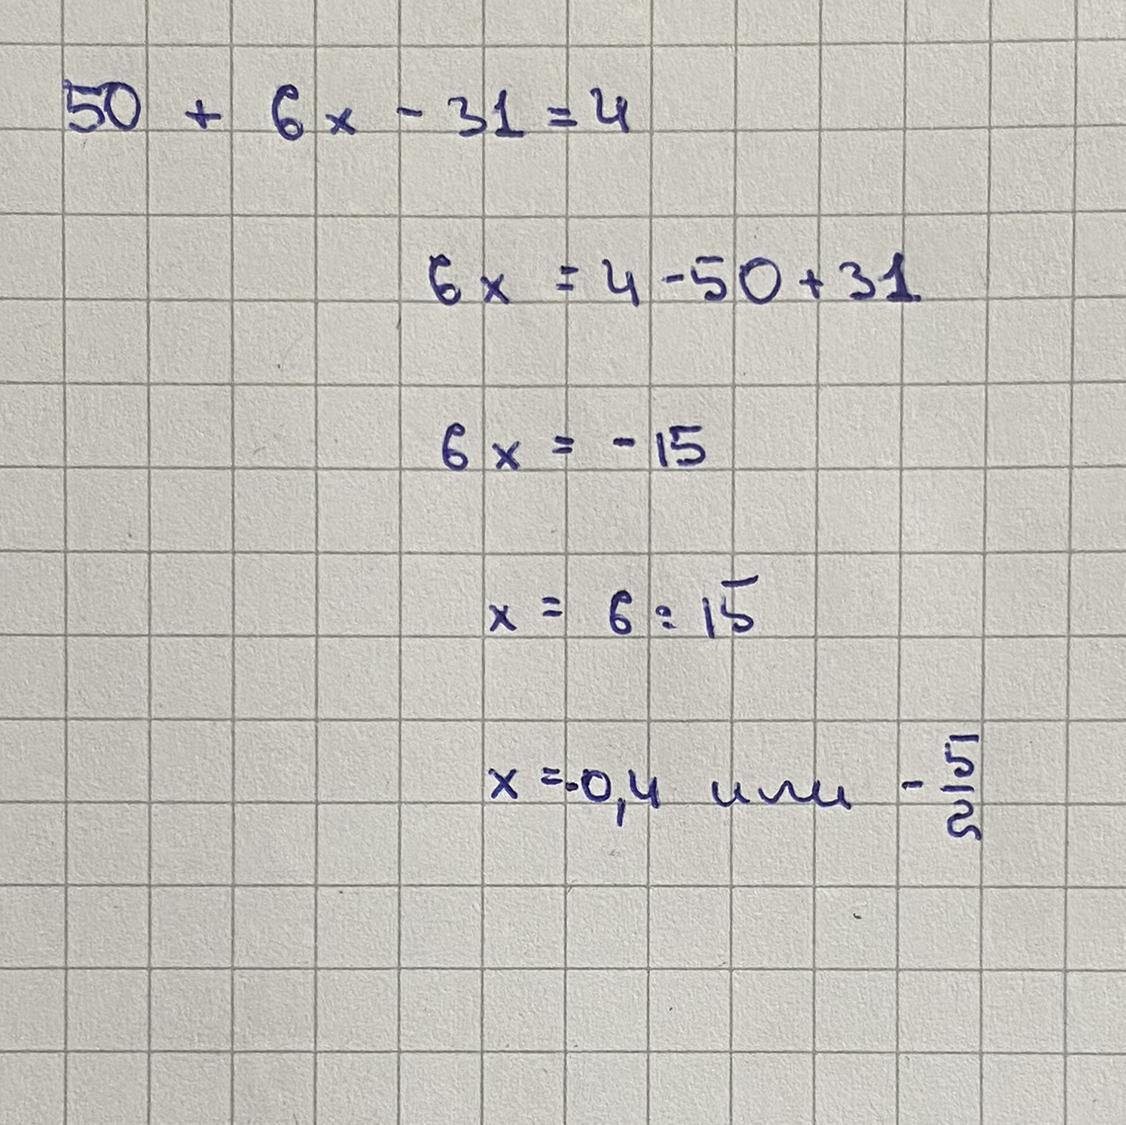 50 + 6x - 31 = 4
6x = 4 - 50 + 31
6x = -15
x = 6 : 15
x = -0,4 или - 5/2